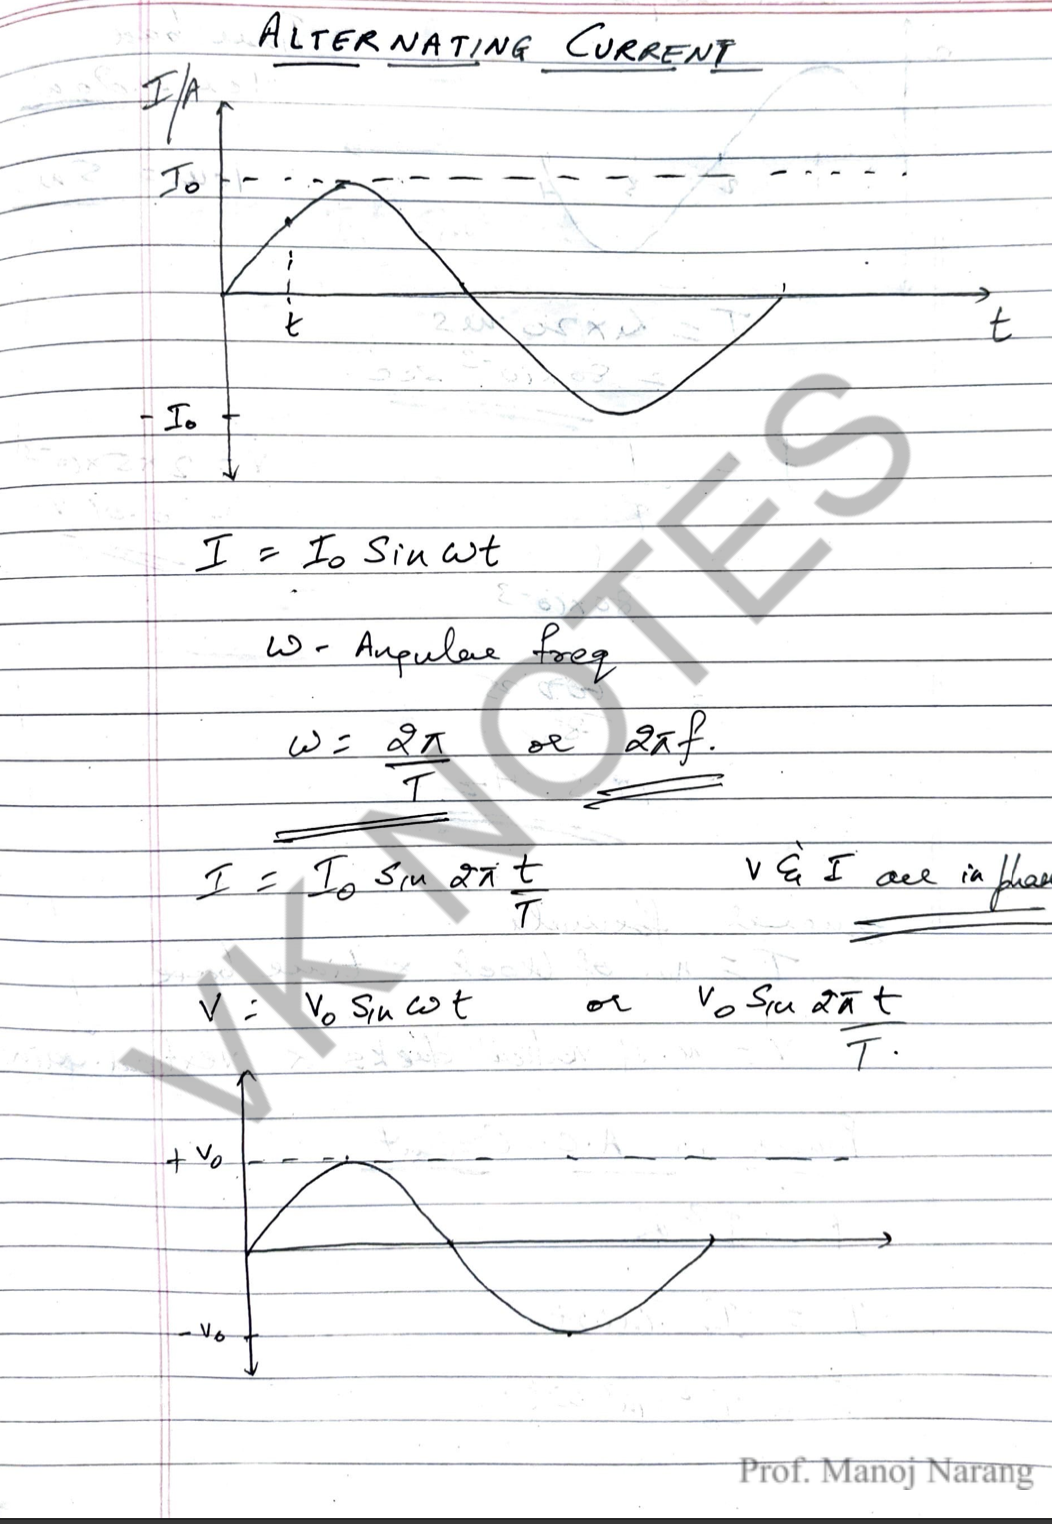 ALTERNATING CURRENT
I/A
I₀
t
t
- I₀
I = I₀ Sin ωt
ω - Angular freq
ω = 2π/T or 2πf.
I = I₀ Sin 2π t/T V & I are in phase
V = V₀ Sin ωt or V₀ Sin 2π t/T.
+ V₀
- V₀
VK NOTES
Prof. Manoj Narang